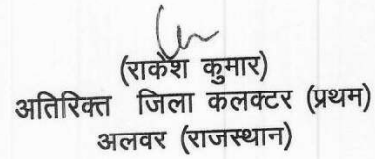 (राकेश कुमार)
अतिरिक्त जिला कलक्टर (प्रथम)
अलवर (राजस्थान)